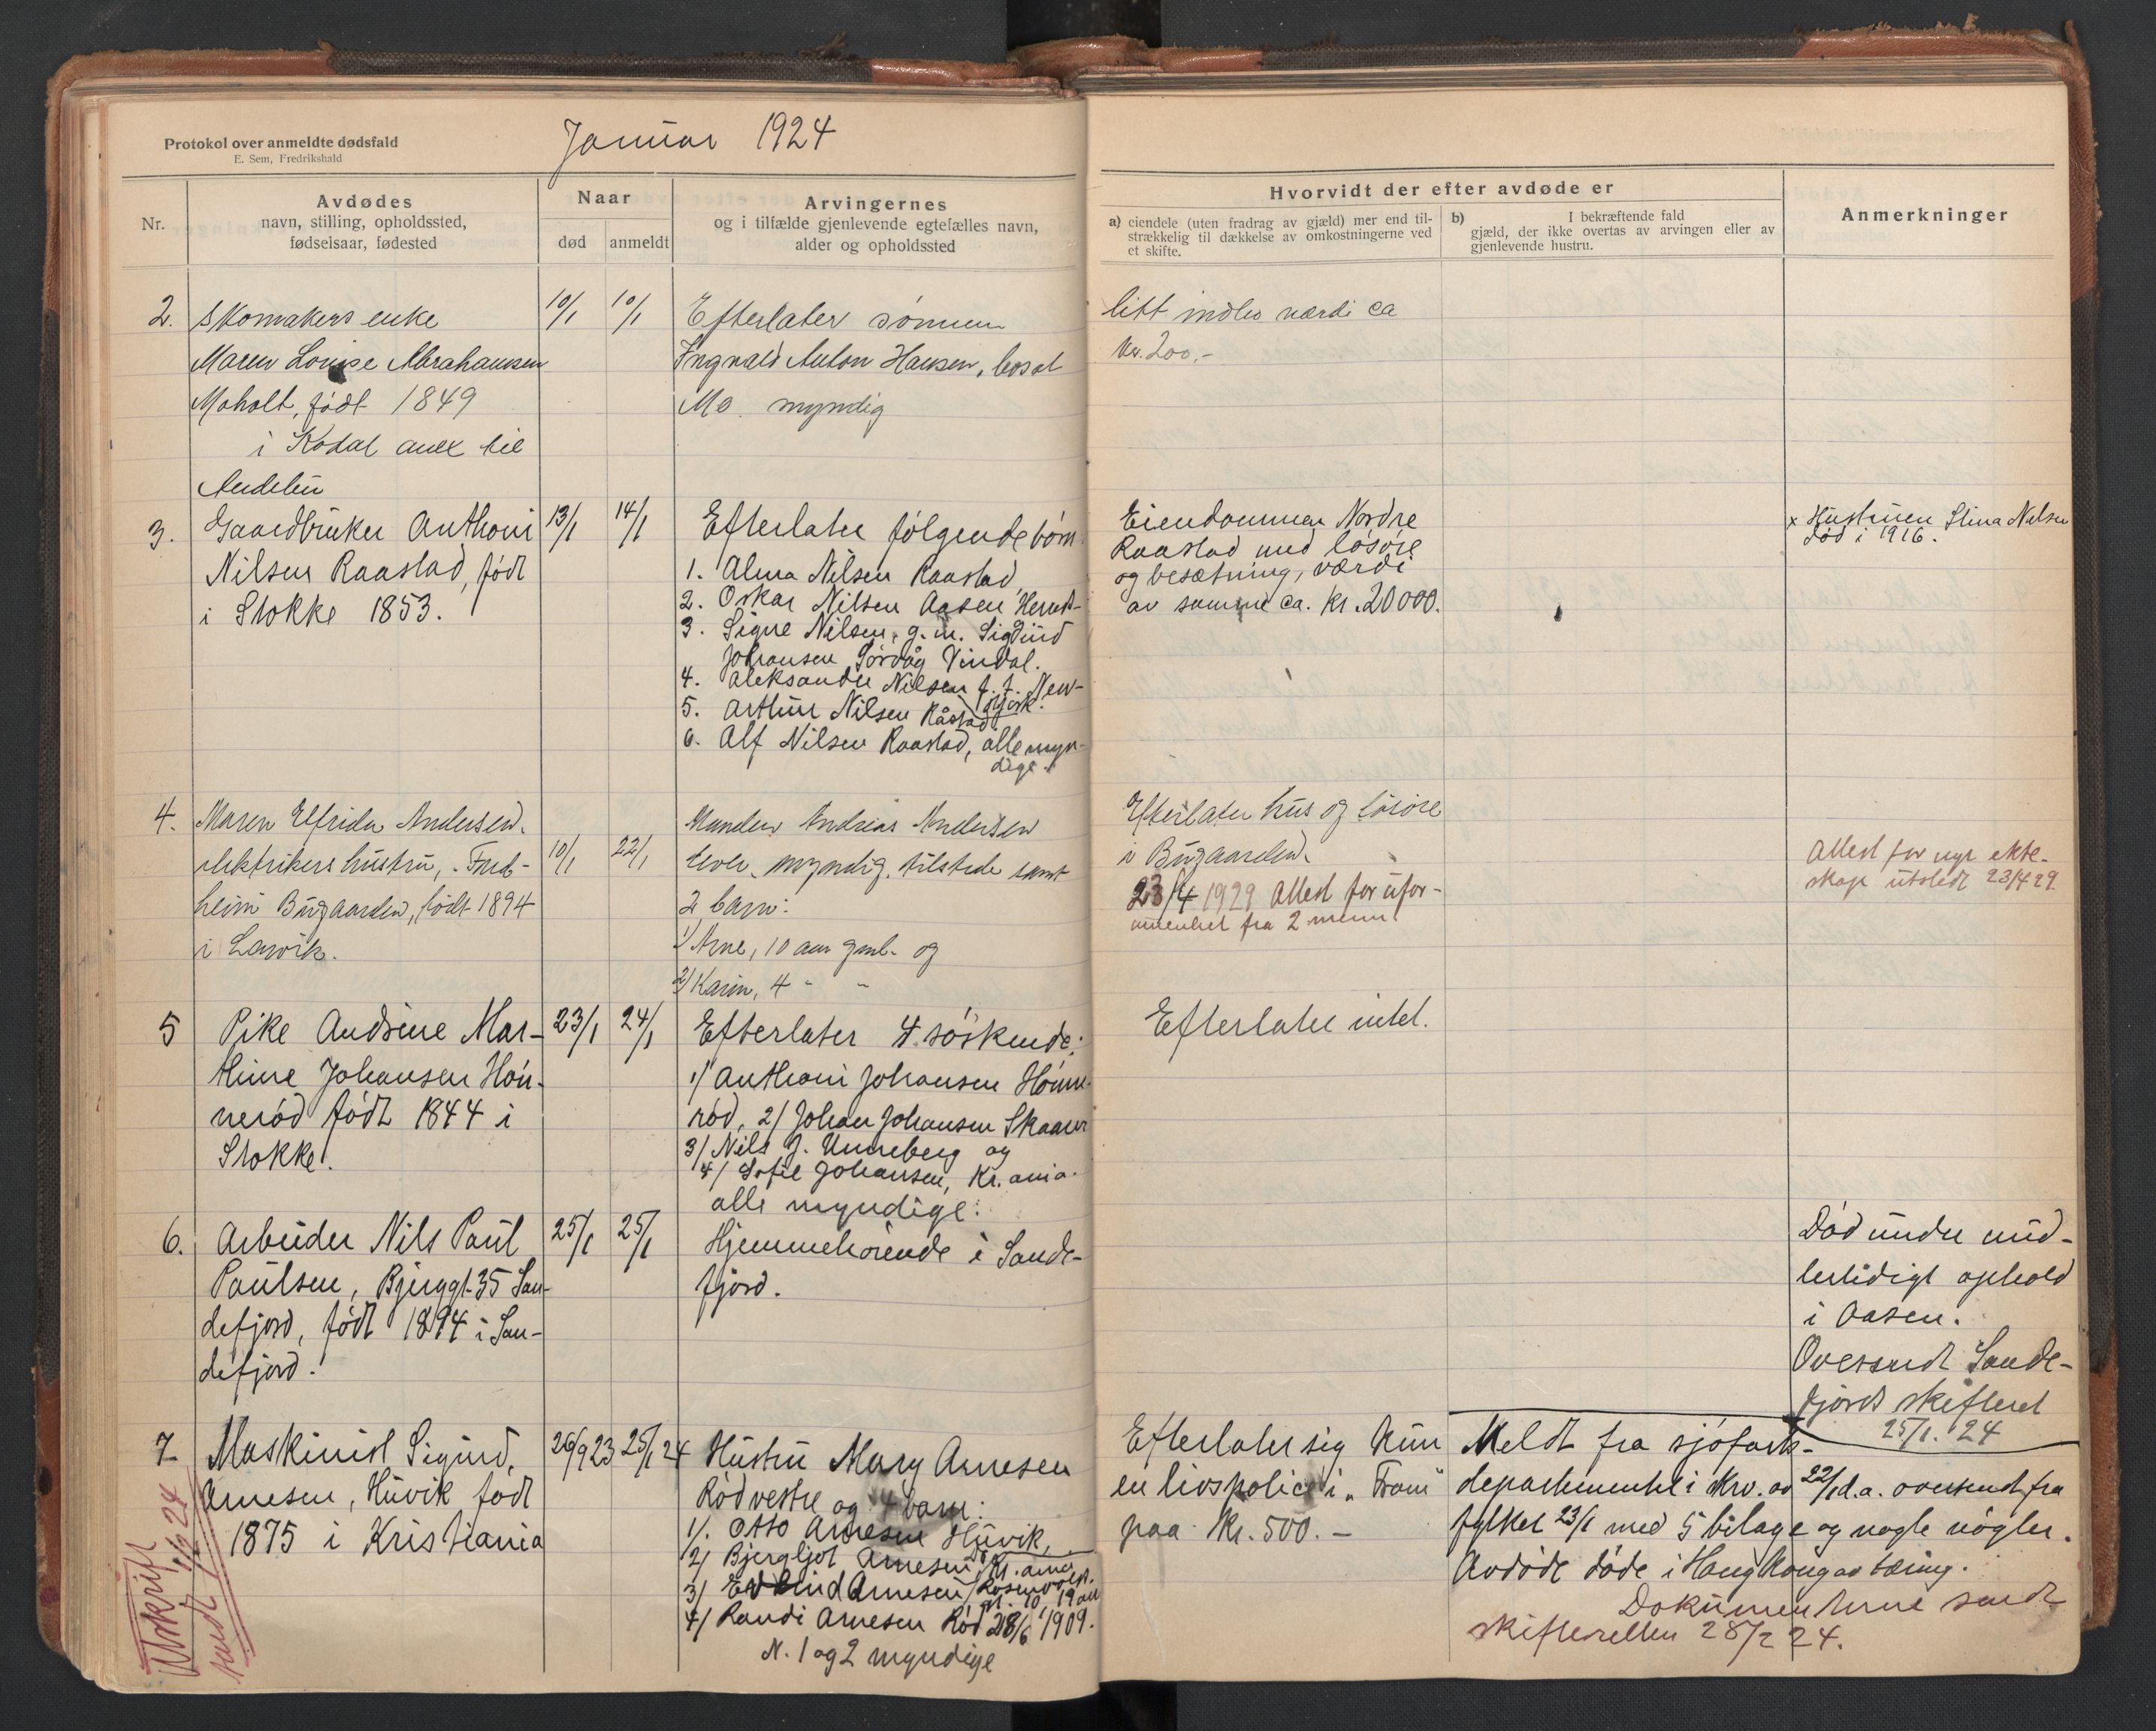 Januar 1924
Protokol over anmeldte dødsfald
E. Sem, Fredrikshald
Nr.
Avdødes
navn, stilling, opholdssted,
fødselsaar, fødested
Naar
død
anmeldt
Arvingernes
og i tilfælde gjenlevende egtefælles navn,
alder og opholdssted
Hvorvidt der efter avdøde er
a) eiendele (uten fradrag av gjæld) mer end til-
strækkelig til dækkelse av omkostningerne ved
et skifte.
b) I bekræftende fald
gjæld, der ikke overtas av arvingen eller av
gjenlevende hustru.
Anmerkninger
2. Skomakers enke
Maren Louise Abrahamsen
Moholt, født 1849
i Kodal anex til
Andebu
10/1
10/1
Efterlater sønnen
Ingvald Anton Hansen, bosat
Mo myndig
litt indbo værdi ca
kr. 200.-
3. Gaardbruker Anthoni
Nilsen Raastad, født
i Stokke 1853.
13/1
14/1
Efterlater følgende børn
1. Alma Nilsen Raastad,
2. Oskar Nilsen Aasen
3. Signe Nilsen, g. m. Sigurd
Johansen Vindal.
4. Aleksander Nilsen f. t. New-
york.
5. Arthur Nilsen Råstad
6. Alf Nilsen Raastad, alle myn-
dige.
Eiendommen Nordre
Raastad med løsøre
og besætning, værdi
av samme ca. kr. 20000.
x Hustruen Stina Nilsen
død i 1916.
4. Maren Elfrida Andersen.
elektrikers hustru, Fred-
heim Bugaarden, født 1894
i Larvik.
10/1
22/1
Manden Andreas Andersen
lever, myndig, tilstede samt
2 barn:
1) Arne, 10 aar gml. og
2) Karin, 4 " "
Efterlater hus og løsøre
i Bugaarden.
23/4 1929 Attest for ufor-
muenhet fra 2 menn.
Attest for nyt ekte-
skap utstedt 23/4 29.
5 Pike Andrine Mar-
thine Johansen Høn-
nerød født 1844 i
Stokke.
23/1
24/1
Efterlater 4 søskende:
1/ Anthoni Johansen Hønne-
rød, 2/ Johan Johansen Skaaur
3/ Nils J. Unneberg og
4/ Sofie Johansen, Kr.ania.
alle myndige.
Efterlater intet.
6. Arbeider Nils Paul
Paulsen, Bjerggt. 35 San-
defjord, født 1894 i San-
defjord.
25/1
25/1
Hjemmehørende i Sande-
fjord.
Død under mid-
lertidigt ophold
i Aasen.
Oversendt Sande-
fjords skifteret
25/1. 24
7. Maskinist Sigurd
Arnesen, Huvik født
1875 i Kristiania
26/9 23
25/1 24
Hustru Mary Arnesen
Rød vestre og 4 barn:
1/. Otto Arnesen Huvik,
2/ Bjergljot Arnesen, Kr.ania
3/ Arnesen
4/ Randi Arnesen Rød 28/6 1909.
N. 1 og 2 myndige
Efterlater sig kun
en livspolice i "Fram"
paa kr. 500.-
Meldt fra sjøfarts-
departementet i skr. av 22/1 d.a. oversendt fra
fylket 23/1 med 5 bilage og nogle nøgler.
Avdøde døde i Hongkong av tæring.
Dokumenterne sendt
skifteretten 28/2 24.
Utskrift
sendt 1/2 24